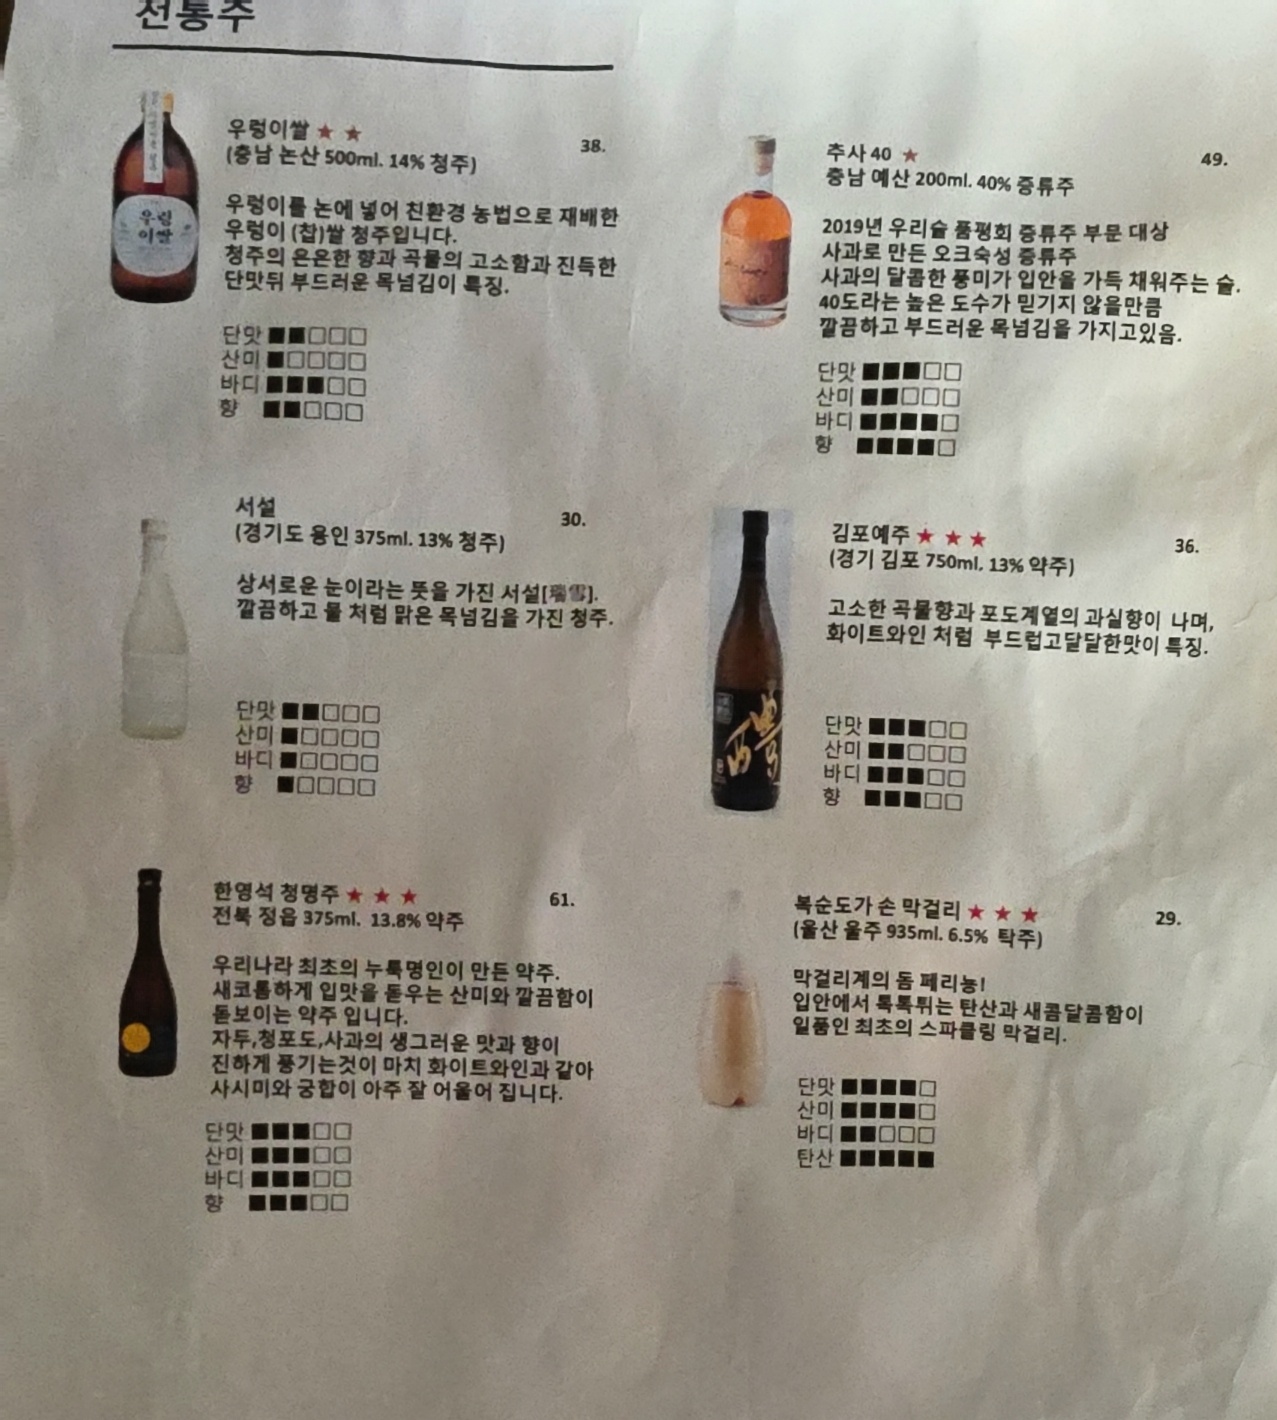 전통주
우렁이쌀 ★ ★
38.
(충남 논산 500ml. 14% 청주)
우렁이를 논에 넣어 친환경 농법으로 재배한
우렁이 (찹)쌀 청주입니다.
청주의 은은한 향과 곡물의 고소함과 진득한
단맛뒤 부드러운 목넘김이 특징.
단맛 ■■□□□
산미 ■□□□□
바디 ■■■□□
향 ■■□□□
우렁
이쌀
서설
30.
(경기도 용인 375ml. 13% 청주)
상서로운 눈이라는 뜻을 가진 서설[瑞雪].
깔끔하고 물 처럼 맑은 목넘김을 가진 청주.
단맛 ■■□□□
산미 ■□□□□
바디 ■□□□□
향 ■□□□□
한영석 청명주 ★ ★ ★
61.
전북 정읍 375ml. 13.8% 약주
우리나라 최초의 누룩명인이 만든 약주.
새코롬하게 입맛을 돋우는 산미와 깔끔함이
돋보이는 약주 입니다.
자두,청포도,사과의 생그러운 맛과 향이
진하게 풍기는것이 마치 화이트와인과 같아
사시미와 궁합이 아주 잘 어울어 집니다.
단맛 ■■■□□
산미 ■■■□□
바디 ■■■□□
향 ■■■□□
추사 40 ★
49.
충남 예산 200ml. 40% 증류주
2019년 우리술 품평회 증류주 부문 대상
사과로 만든 오크숙성 증류주
사과의 달콤한 풍미가 입안을 가득 채워주는 술.
40도라는 높은 도수가 믿기지 않을만큼
깔끔하고 부드러운 목넘김을 가지고있음.
단맛 ■■■□□
산미 ■■□□□
바디 ■■■■□
향 ■■■■□
김포예주 ★ ★ ★
36.
(경기 김포 750ml. 13% 약주)
고소한 곡물향과 포도계열의 과실향이 나며,
화이트와인 처럼 부드럽고달달한맛이 특징.
단맛 ■■■□□
산미 ■■□□□
바디 ■■■□□
향 ■■■□□
醴
복순도가 손 막걸리 ★ ★ ★
29.
(울산 울주 935ml. 6.5% 탁주)
막걸리계의 돔 페리뇽!
입안에서 톡톡튀는 탄산과 새콤달콤함이
일품인 최초의 스파클링 막걸리.
단맛 ■■■■□
산미 ■■■■□
바디 ■■□□□
탄산 ■■■■■